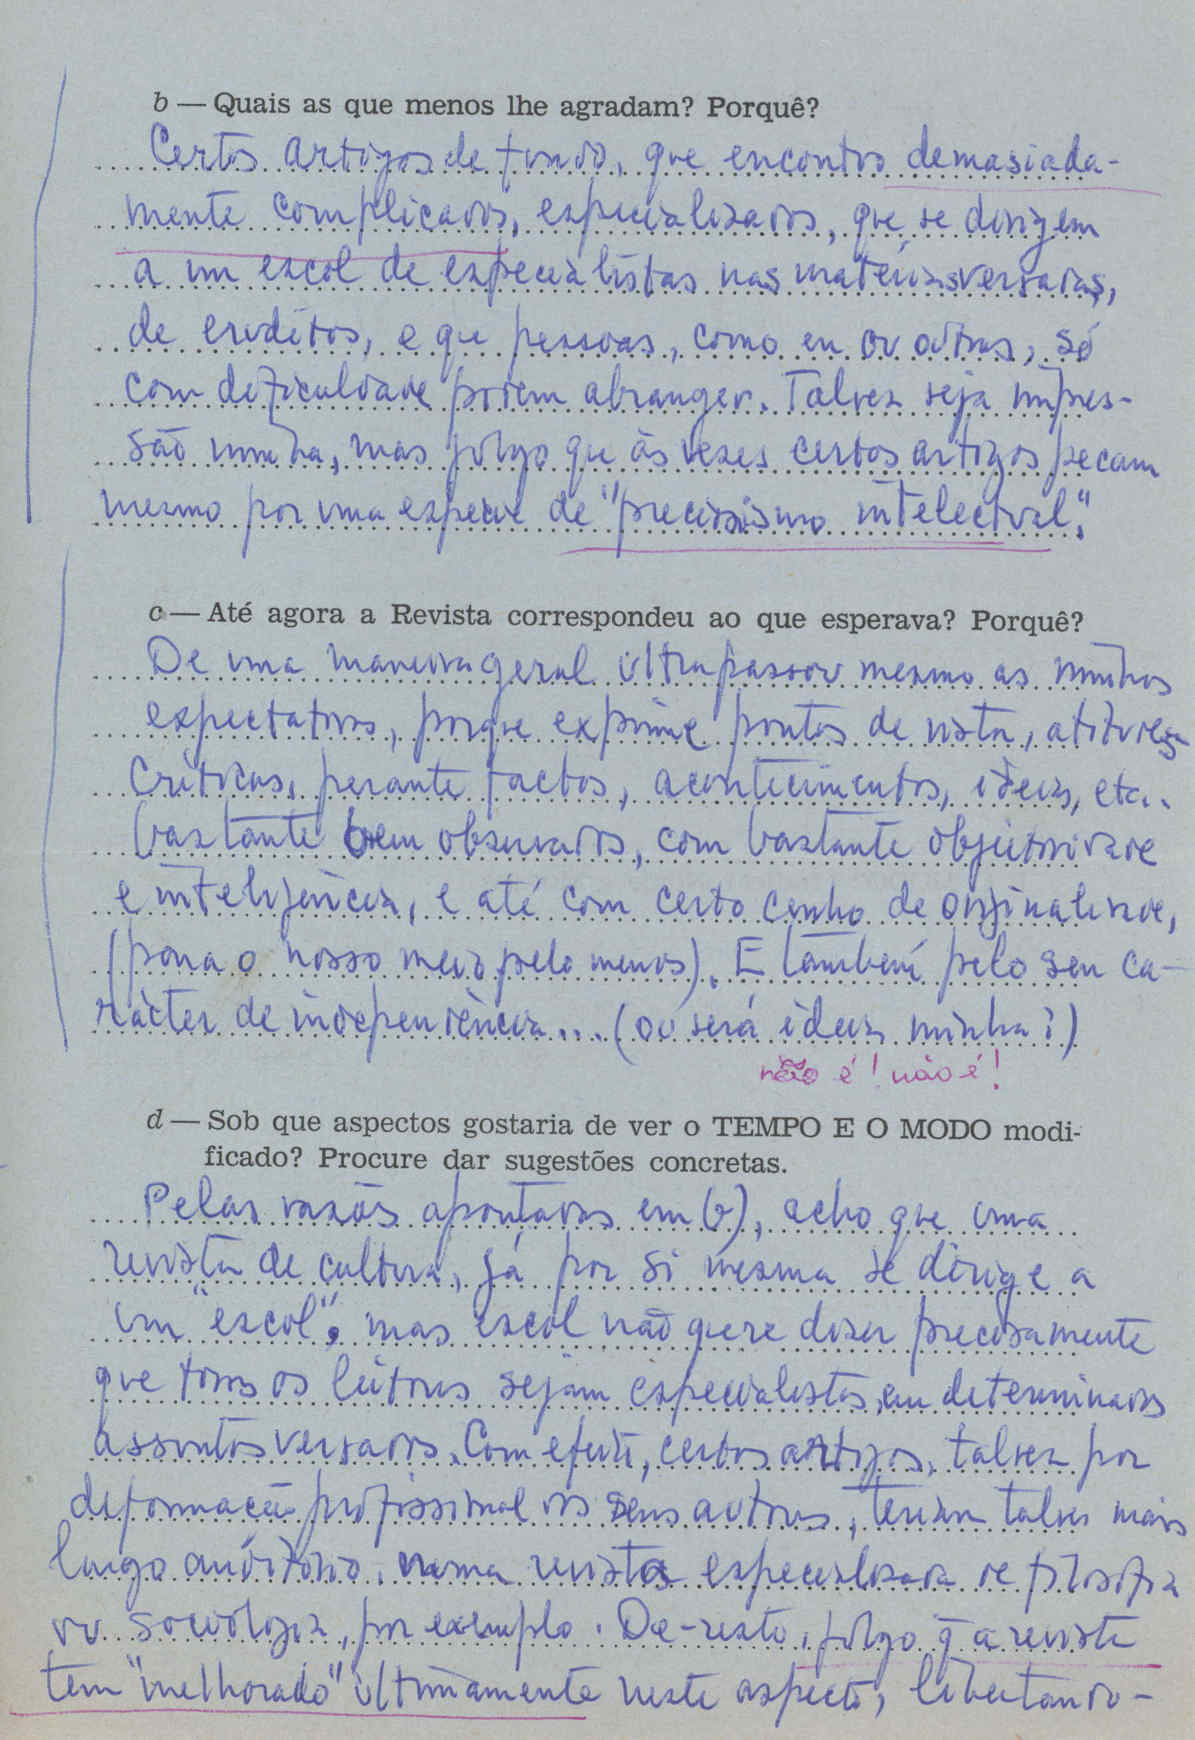 b — Quais as que menos lhe agradam? Porquê?
Certos artigos de fundo, que encontro demasiada-
mente complicados, especializados, que se dirigem
a um escol de especialistas nas matérias versadas,
de eruditos, e que pessoas, como eu ou outras, só
com dificuldade podem abranger. Talvez seja impres-
são minha, mas julgo que às vezes certos artigos pecam
mesmo por uma espécie de "preciosismo intelectual".
c — Até agora a Revista correspondeu ao que esperava? Porquê?
De uma maneira geral ultrapassou mesmo as minhas
expectativas, porque exprime pontos de vista, atitudes
críticas, perante factos, acontecimentos, ideias, etc..
bastante bem observados, com bastante objectividade
e inteligência, e até com certo cunho de originalidade,
(para o nosso meio pelo menos). E também pelo seu ca-
rácter de independência... (ou será ideia minha?)
não é! não é!
d — Sob que aspectos gostaria de ver o TEMPO E O MODO modi-
ficado? Procure dar sugestões concretas.
Pelas razões apontadas em b), acho que uma
revista de cultura, já por si mesma se dirige a
um "escol", mas escol não quere dizer precisamente
que todos os leitores sejam especialistas, em determinados
assuntos versados. Com efeito, certos artigos, talvez por
deformação profissional dos seus autores, teriam talvez mais
largo auditório numa revista especializada de filosofia
ou sociologia, por exemplo. De-resto, julgo q̃ a revista
tem "melhorado" ultimamente neste aspecto, libertando-